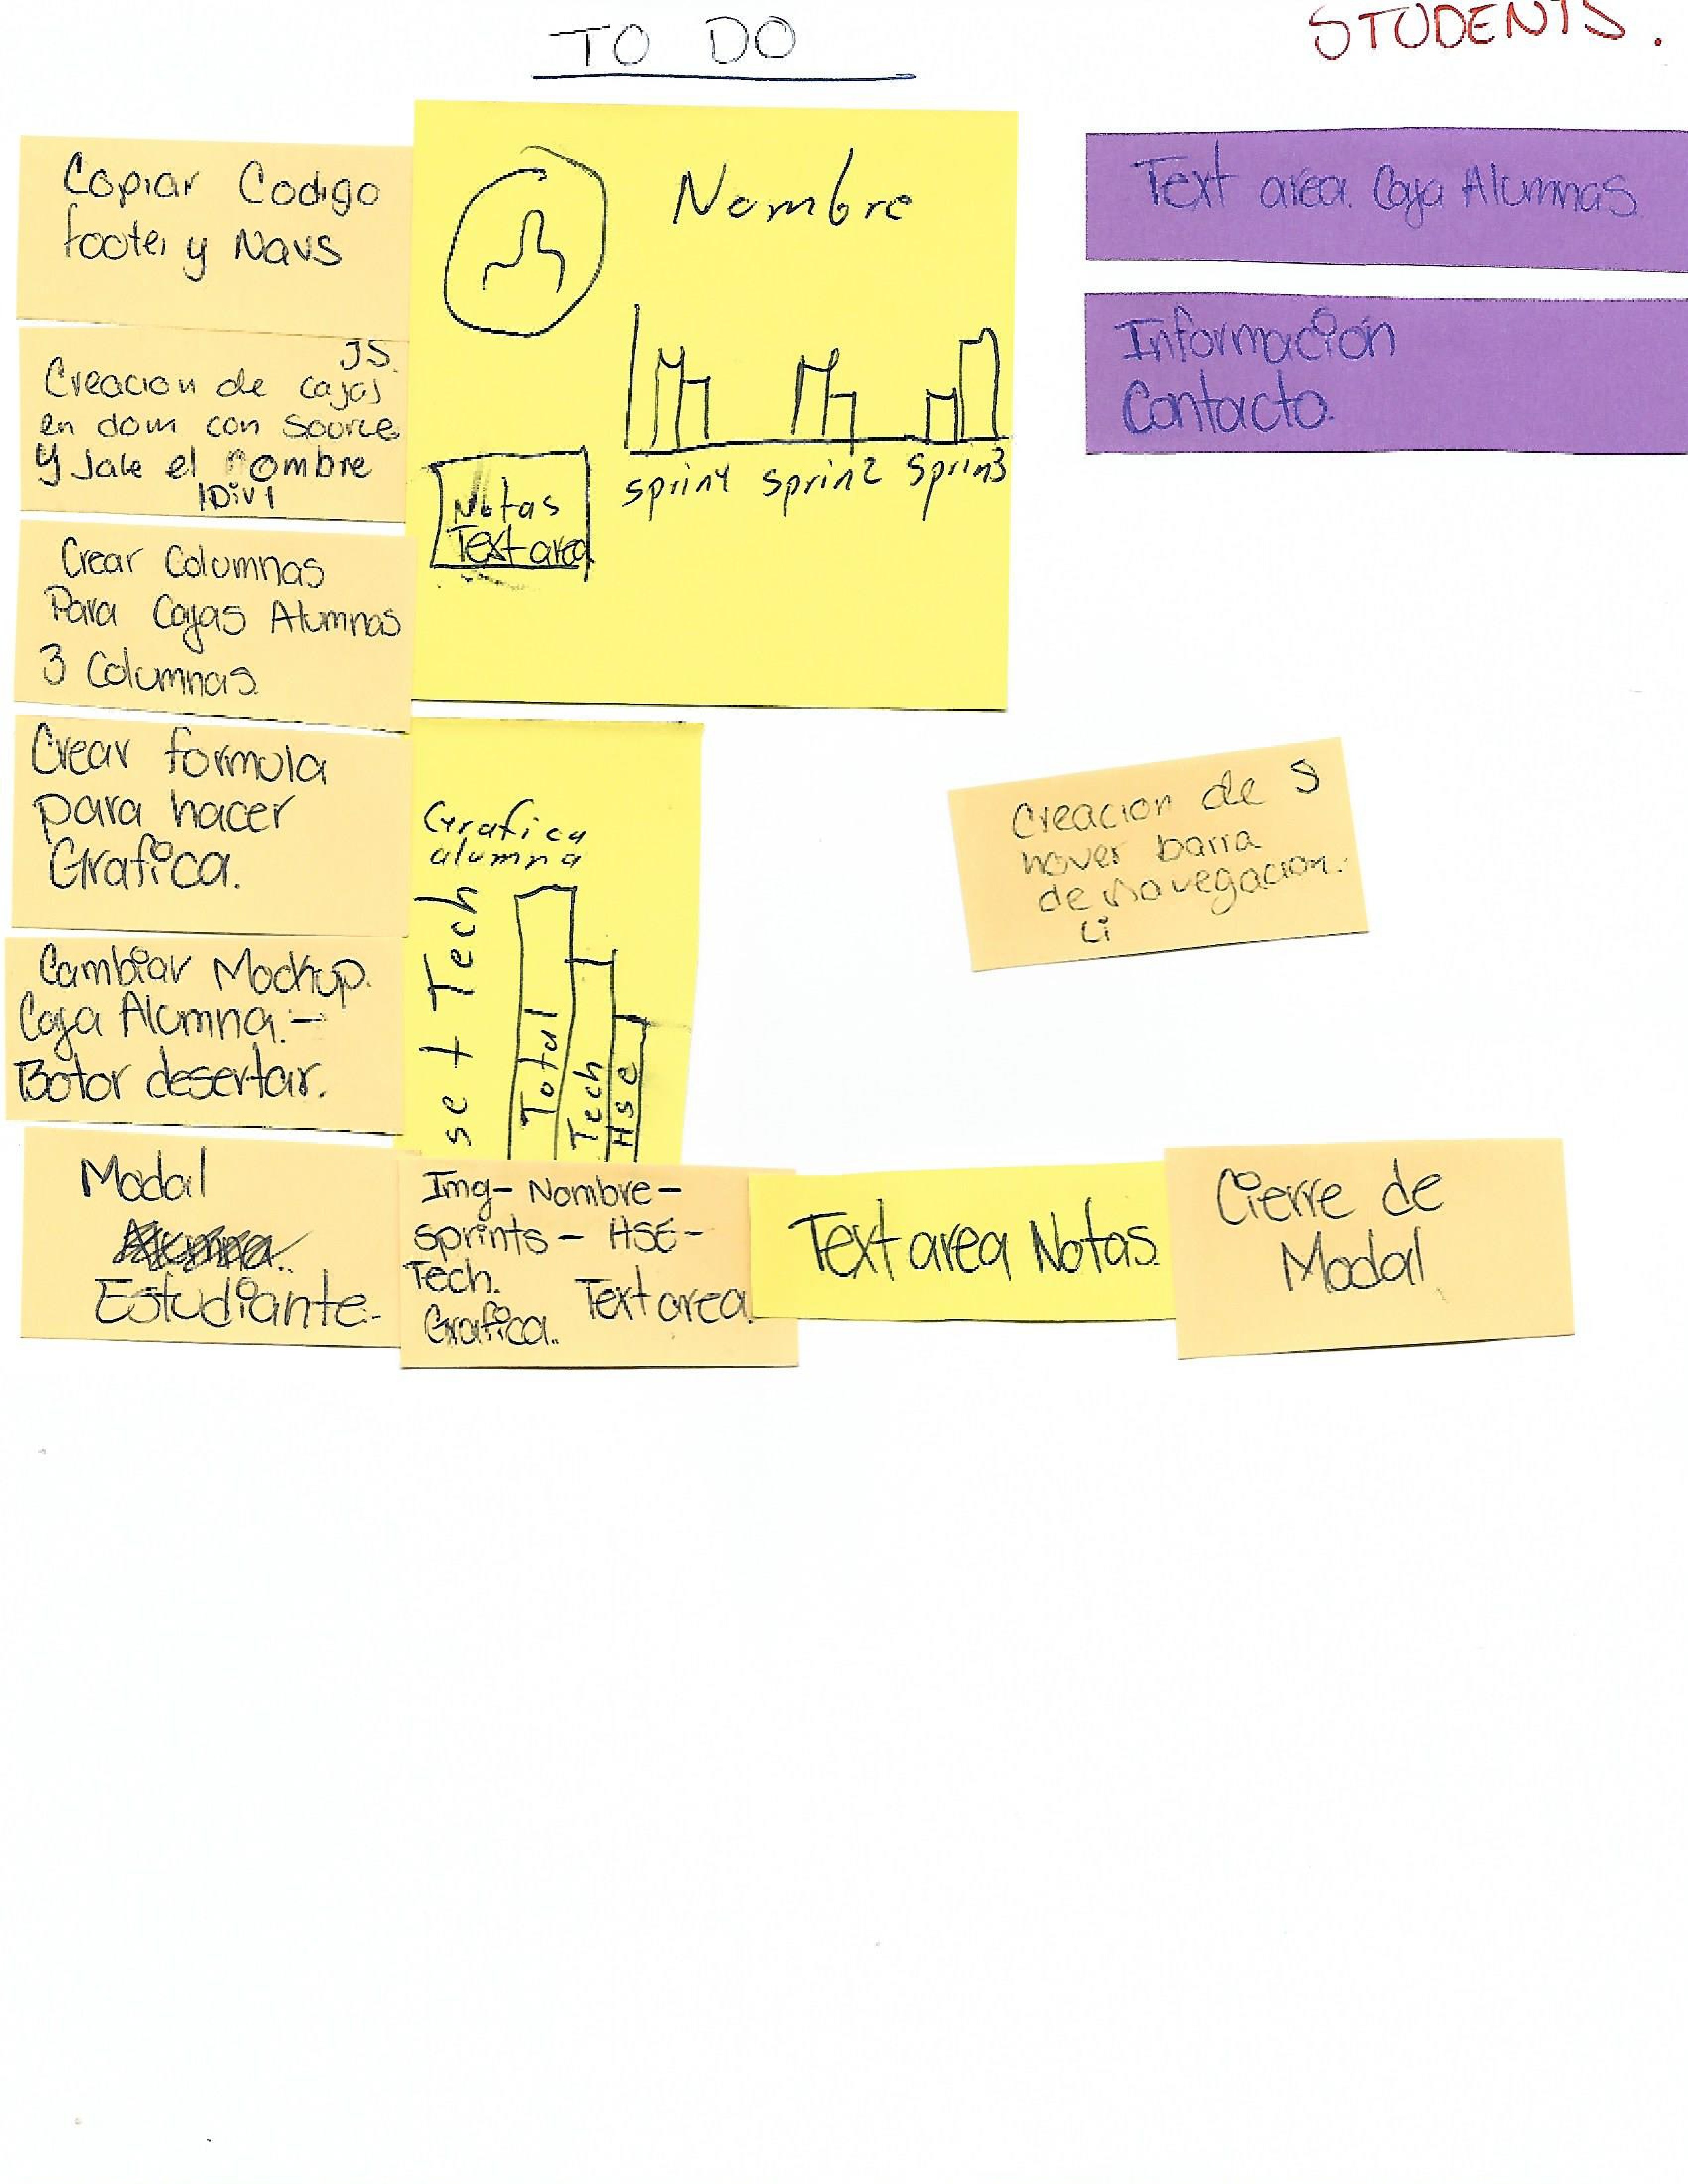 TO DO
STUDENTS.
Copiar Codigo
footer y Navs
JS.
Creacion de cajas
en dom con source
y Jale el nombre
1Div1
Crear Columnas
Para Cajas Alumnas
3 Columnas.
Crear formula
para hacer
Grafica.
Cambiar Mockup.
Caja Alumna.-
Boton desertar.
Modal
Estudiante-
Nombre
Notas
Text area
Sprint1 Sprin2 Sprin3
Grafica
alumna
set Tech
Total
Tech
Hse
Img- Nombre-
sprints - HSE-
Tech.
Text area.
Grafica..
Text area Notas.
Cierre de
Modal
Text area. Caja Alumnas
Información
Contacto.
Creacion de S
hover barra
de navegacion.
Li